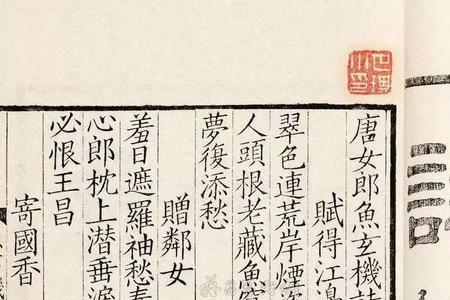 唐女郎魚玄機
賦得江
翠色連荒岸煙
人頭根老藏魚窟
夢復添愁
贈鄰女
羞日遮羅袖愁春
心郎枕上潛垂淚
必恨王昌
寄國香